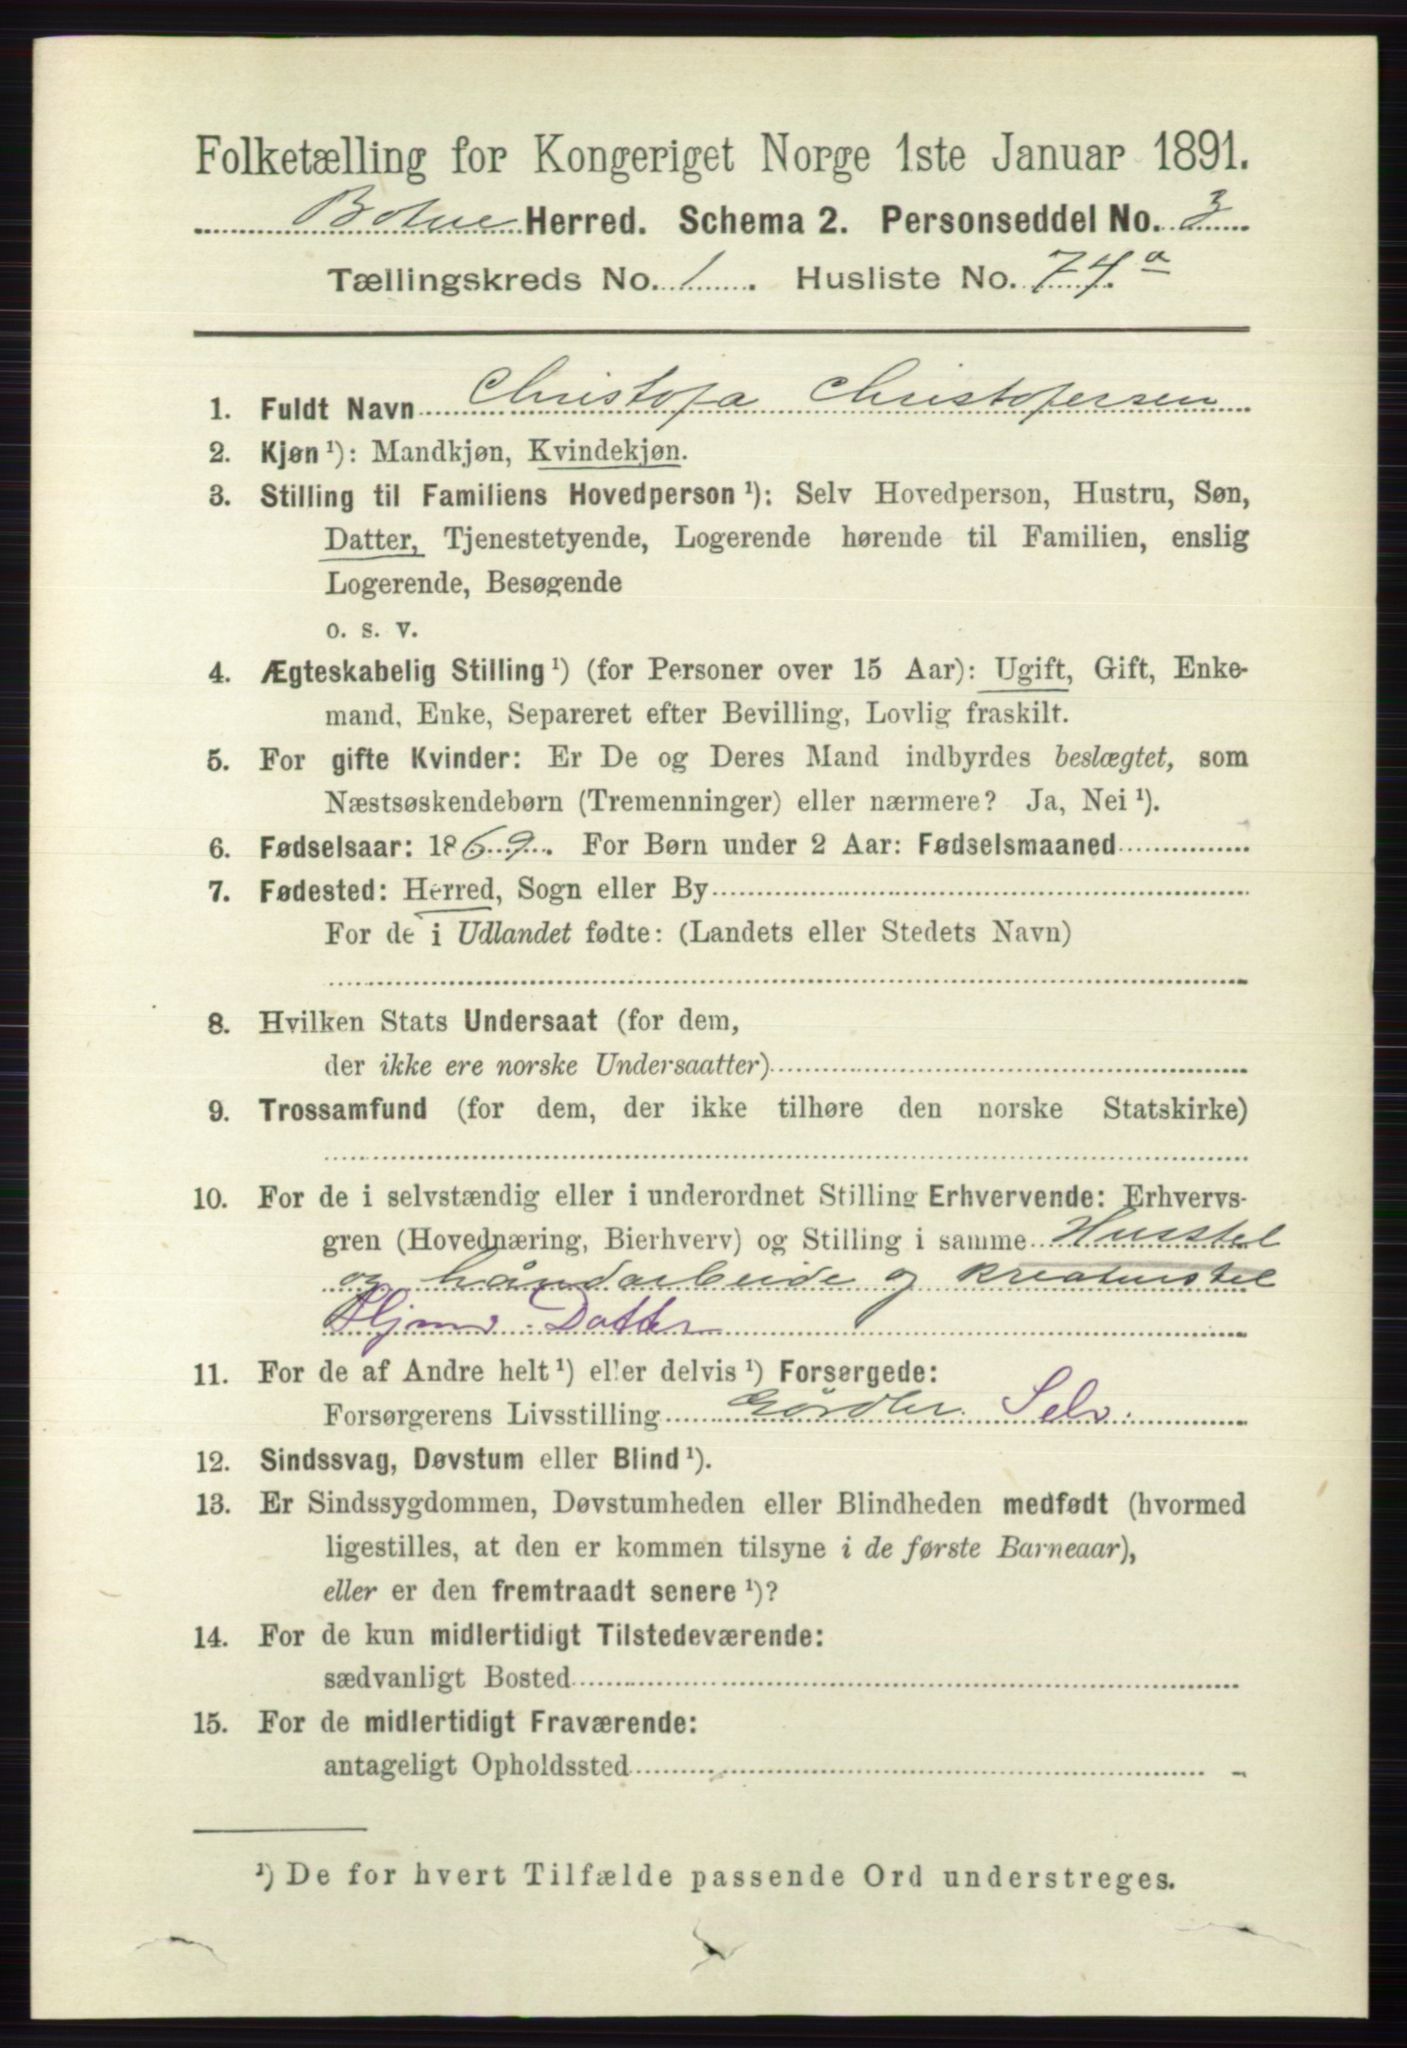 Folketælling for Kongeriget Norge 1ste Januar 1891.
Botne Herred. Schema 2. Personseddel No. 3
Tællingskreds No. 1. Husliste No. 74.a
1. Fuldt Navn Christofa Christofersen
2. Kjøn¹): Mandkjøn, Kvindekjøn.
3. Stilling til Familiens Hovedperson¹): Selv Hovedperson, Hustru, Søn,
Datter, Tjenestetyende, Logerende hørende til Familien, enslig
Logerende, Besøgende
o. s. v.
4. Ægteskabelig Stilling¹) (for Personer over 15 Aar): Ugift, Gift, Enke-
mand, Enke, Separeret efter Bevilling, Lovlig fraskilt.
5. For gifte Kvinder: Er De og Deres Mand indbyrdes beslægtet, som
Næstsøskendebørn (Tremenninger) eller nærmere? Ja, Nei¹).
6. Fødselsaar: 1869. For Børn under 2 Aar: Fødselsmaaned
7. Fødested: Herred, Sogn eller By
For de i Udlandet fødte: (Landets eller Stedets Navn)
8. Hvilken Stats Undersaat (for dem,
der ikke ere norske Undersaatter)
9. Trossamfund (for dem, der ikke tilhøre den norske Statskirke)
10. For de i selvstændig eller i underordnet Stilling Erhvervende: Erhvervs-
gren (Hovednæring, Bierhverv) og Stilling i samme Husstel
og håndarbeide og kreaturstel
Hjmv. Datter
11. For de af Andre helt¹) eller delvis¹) Forsørgede:
Forsørgerens Livsstilling Selv.
12. Sindssvag, Døvstum eller Blind¹).
13. Er Sindssygdommen, Døvstumheden eller Blindheden medfødt (hvormed
ligestilles, at den er kommen tilsyne i de første Barneaar),
eller er den fremtraadt senere¹)?
14. For de kun midlertidigt Tilstedeværende:
sædvanligt Bosted
15. For de midlertidigt Fraværende:
antageligt Opholdssted
¹) De for hvert Tilfælde passende Ord understreges.